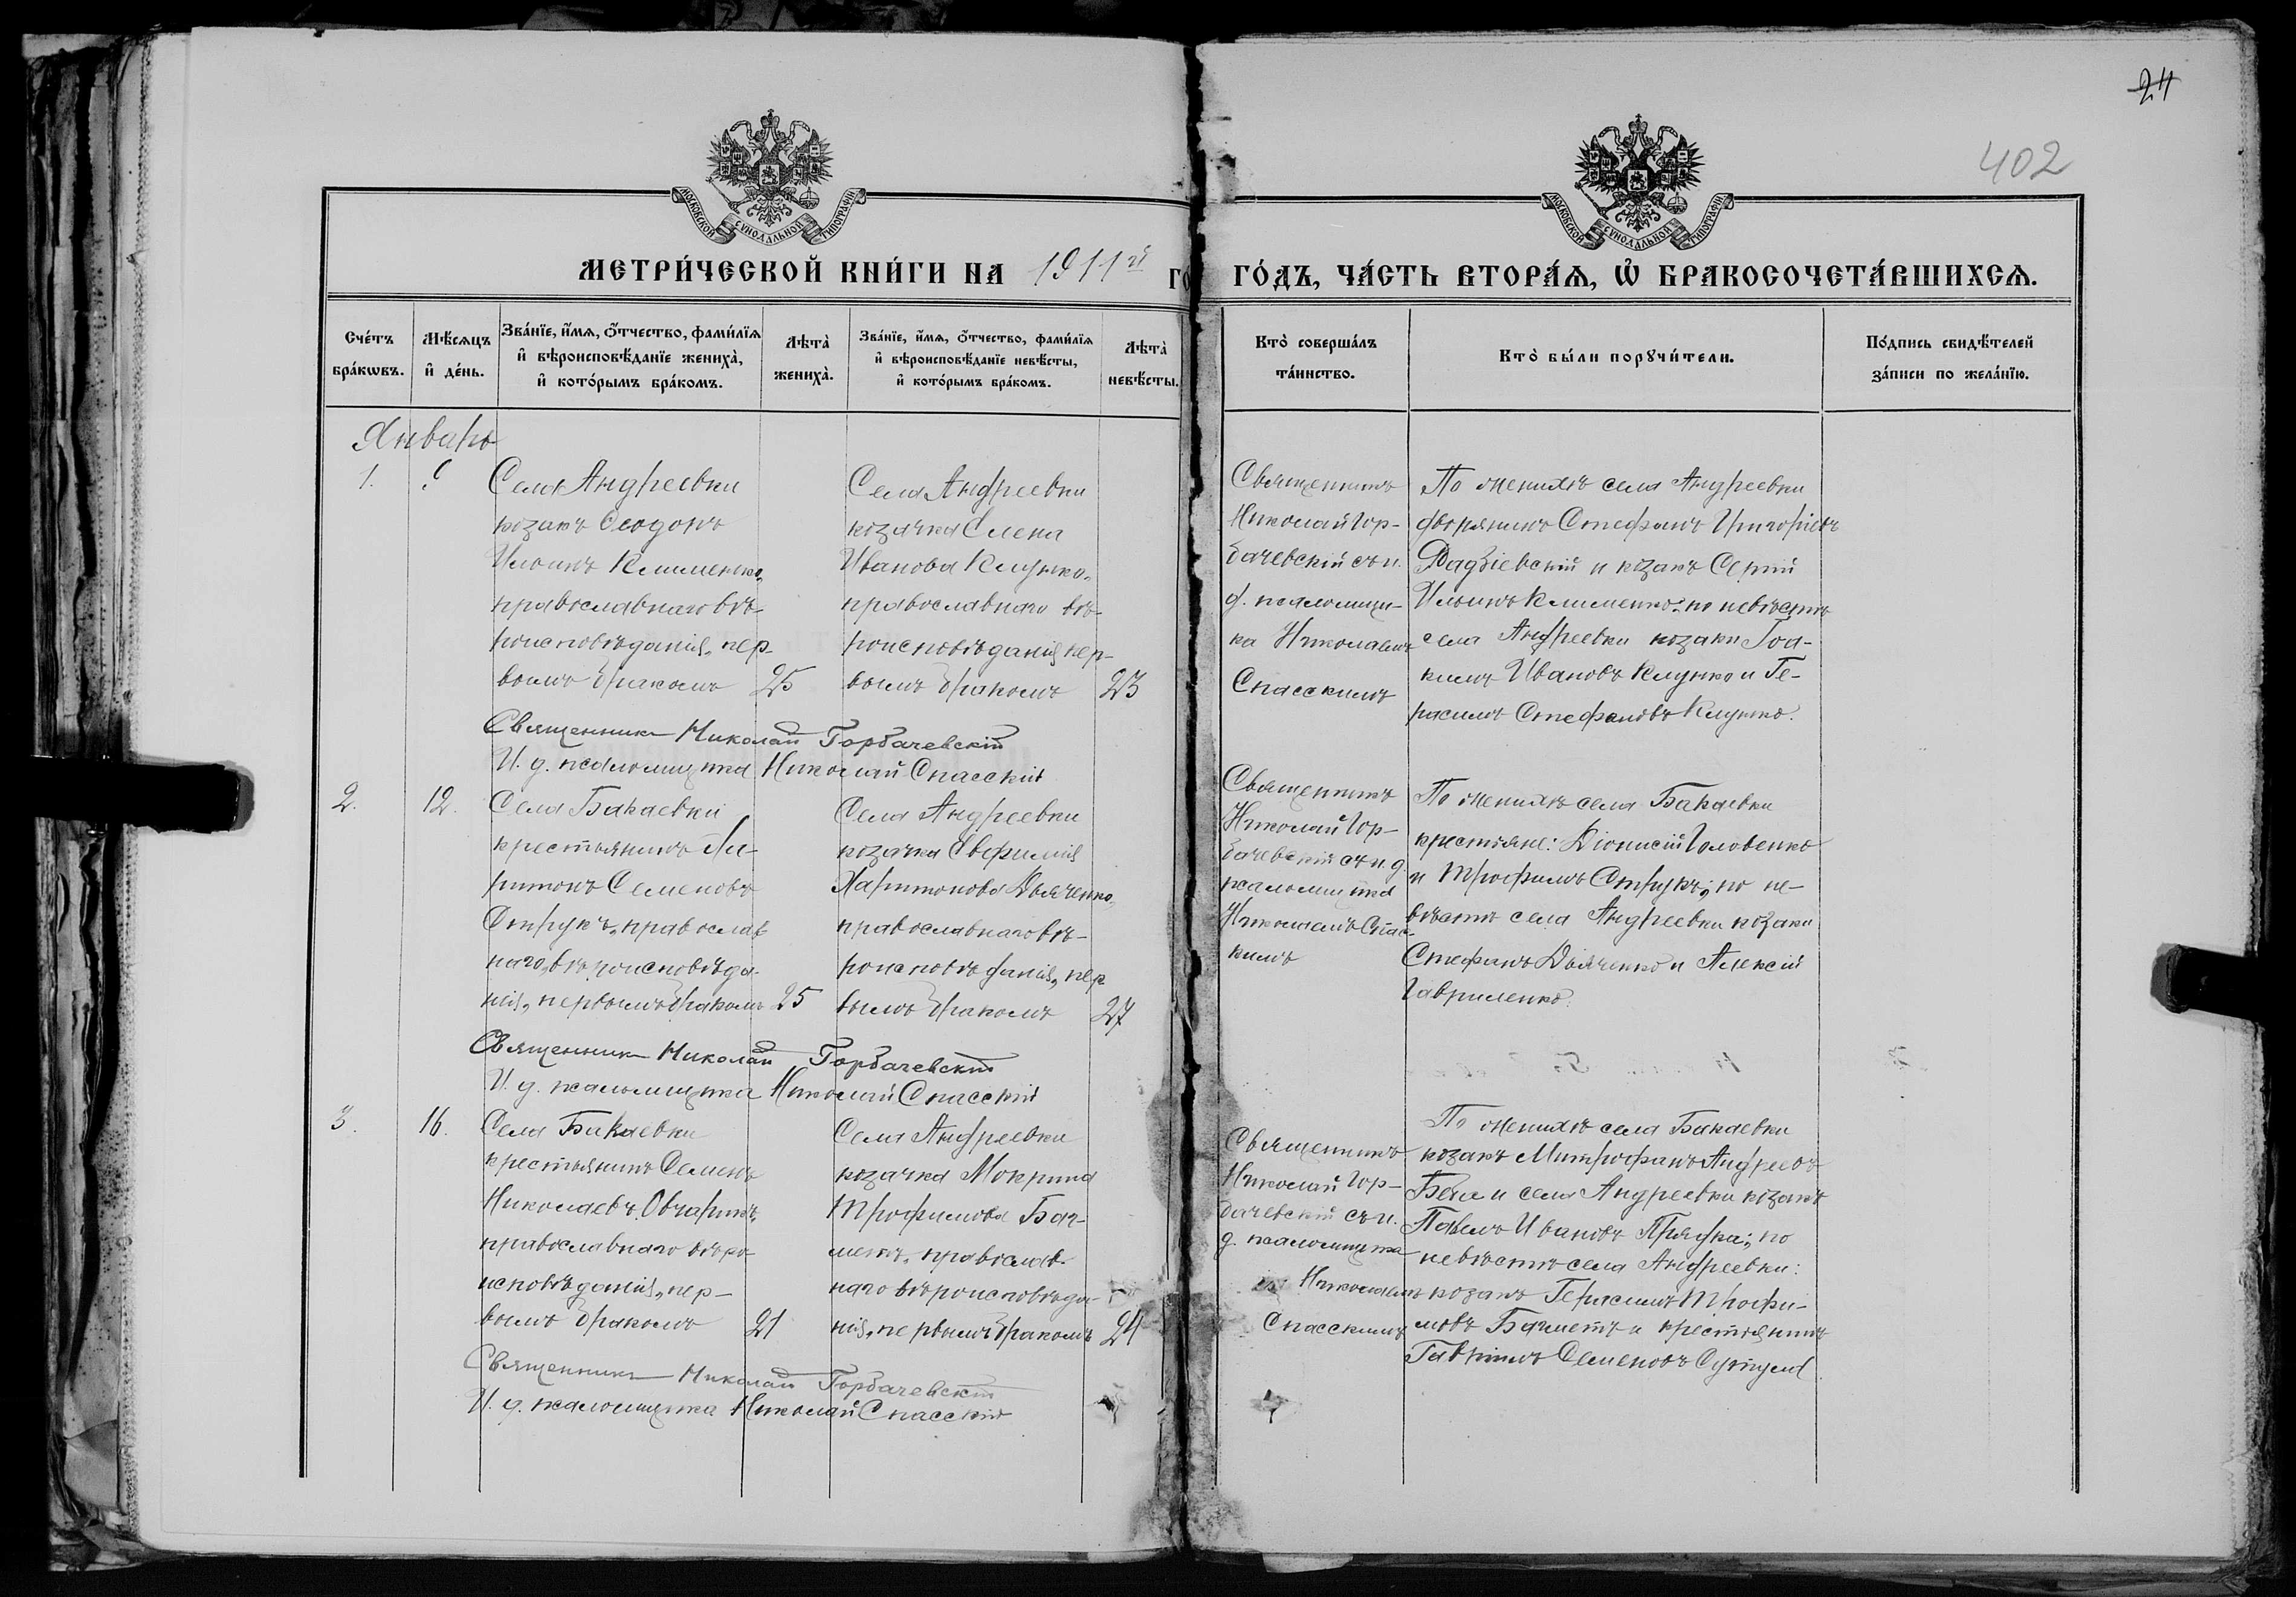 24
402
МОСКОВСКОЙ СѴНОДАЛЬНОЙ ТИПОГРАФІИ
МОСКОВСКОЙ СѴНОДАЛЬНОЙ ТИПОГРАФІИ
МЕТРИ́ЧЕСКОЙ КНИ́ГИ НА 1911й ГО́ДЪ, ЧА́СТЬ ВТОРА́Я, Ѿ БРАКОСОЧЕТА́ВШИХСЯ.
Сче́тъ бра́кѡвъ.
Мѣ́сяцъ и҆ де́нь.
Зва́нїе, и҆́мя, ѻ҆́тчество, фами́лїя и҆ вѣроисповѣ́данїе жениха̀, и҆ кото́рымъ бра́комъ.
Лѣта̀ жениха̀.
Зва́нїе, и҆́мя, ѻ҆́тчество, фами́лїя и҆ вѣроисповѣ́данїе невѣ́сты, и҆ кото́рымъ бра́комъ.
Лѣта̀ невѣ́сты.
Кто̀ соверша́лъ та́инство.
Кто̀ бы́ли порꙋчи́тели.
По́дпись свидѣ́телей за́писи по жела́нїю.
Январь
1.
Села Андреевки
козакъ Ѳеодоръ
Ильинъ Клименко,
православнаго вѣ-
роисповѣданія, пер-
вымъ бракомъ
25
Села Андреевки
козачка Елена
Иванова Клунко,
православнаго вѣ-
роисповѣданія, пер-
вымъ бракомъ
23
Священникъ
Николай Гор-
бачевскій съ и.
д. псаломщи-
ка Николаемъ
Спасскимъ
По женихѣ села Андреевки
дворянинъ Стефанъ Григоріевъ
Радзіевскій и козакъ Сергій
Ильинъ Клименко; по невѣстѣ
села Андреевки козаки Іоа-
кимъ Ивановъ Клунко и Ге-
расимъ Стефановъ Клунко.
Священникъ Николай Горбачевскій
И. д. псаломщика Николай Спасскій
2.
12.
Села Бакаевки
крестьянинъ Ха-
ритонъ Семеновъ
Струкъ, православ
наго вѣроисповѣда-
нія, первымъ бракомъ
25
Села Андреевки
козачка Евфимія
Харитонова Дьяченко,
православнаго вѣ-
роисповѣданія, пер
вымъ бракомъ
27
Священникъ
Николай Гор-
бачевскій съ и. д.
псаломщика
Николаемъ Спас-
кимъ
По женихѣ села Бакаевки
крестьяне: Діонисій Головенко
и Трофимъ Струкъ; по не-
вѣстѣ села Андреевки козаки
Стефанъ Дьяченко и Алексій
Гавриленко.
Священникъ Николай Горбачевскій
И. д. псаломщика Николай Спасскій
3.
16.
Села Бакаевки
крестьянинъ Семенъ
Николаевъ Овчарикъ,
православнаго вѣро
исповѣданія, пер-
вымъ бракомъ
21
Села Андреевки
козачка Мокрина
Трофимова Бач-
метъ, православ-
наго вѣроисповѣда-
нія, первымъ бракомъ
24
Священникъ
Николай Гор-
бачевскій съ и.
д. псаломщика
Николаемъ
Спасскимъ
По женихѣ села Бакаевки
козакъ Митрофанъ Андреевъ
и села Андреевки козакъ
Павелъ Ивановъ Прядка; по
невѣстѣ села Андреевки:
козакъ Герасимъ Трофи-
мовъ Бачметъ и крестьянинъ
Гавріилъ Семеновъ
Священникъ Николай Горбачевскій
И. д. псаломщика Николай Спасскій